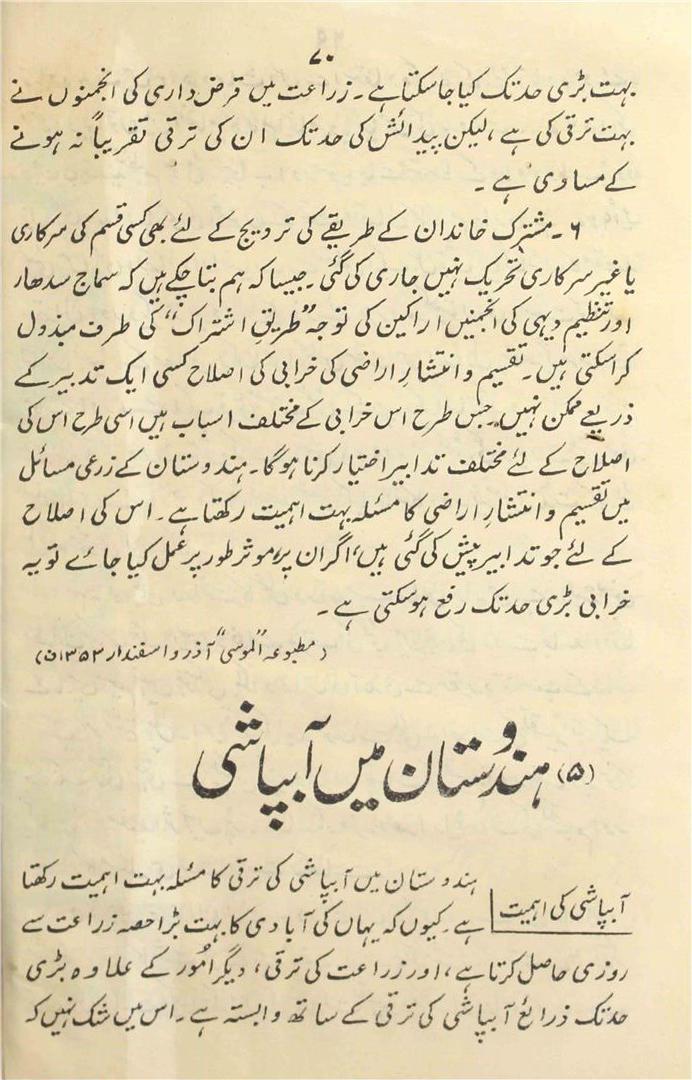 ۷۰
بہت بڑی حد تک کیا جا سکتا ہے۔ زراعت میں قرض داری کی انجمنوں نے
بہت ترقی کی ہے، لیکن پیدائش کی حد تک ان کی ترقی تقریباً نہ ہونے
کے مساوی ہے۔
۶۔ مشترک خاندان کے طریقے کی ترویج کے لئے بھی کسی قسم کی سرکاری
یا غیر سرکاری تحریک نہیں جاری کی گئی۔ جیسا کہ ہم بتا چکے ہیں کہ سماج سدھار
اور تنظیم دیہی کی انجمنیں اراکین کی توجہ "طریقِ اشتراک" کی طرف مبذول
کرا سکتی ہیں۔ تقسیم و انتشارِ اراضی کی خرابی کی اصلاح کسی ایک تدبیر کے
ذریعے ممکن نہیں۔ جس طرح اس خرابی کے مختلف اسباب ہیں اسی طرح اس کی
اصلاح کے لئے مختلف تدابیر اختیار کرنا ہوگا۔ ہندوستان کے زرعی مسائل
میں تقسیم و انتشارِ اراضی کا مسئلہ بہت اہمیت رکھتا ہے۔ اس کی اصلاح
کے لئے جو تدابیر پیش کی گئی ہیں، اگر ان پر موثر طور پر عمل کیا جائے تو یہ
خرابی بڑی حد تک رفع ہو سکتی ہے۔
(مطبوعہ "الموسی" آذر و اسفندار ۱۳۵۳ف)
(۵) ہندوستان میں آبپاشی
آبپاشی کی اہمیت
ہندوستان میں آبپاشی کی ترقی کا مسئلہ بہت اہمیت رکھتا
ہے۔ کیوں کہ یہاں کی آبادی کا بہت بڑا حصہ زراعت سے
روزی حاصل کرتا ہے، اور زراعت کی ترقی، دیگر اُمور کے علاوہ بڑی
حد تک ذرائع آبپاشی کی ترقی کے ساتھ وابستہ ہے۔ اس میں شک نہیں کہ